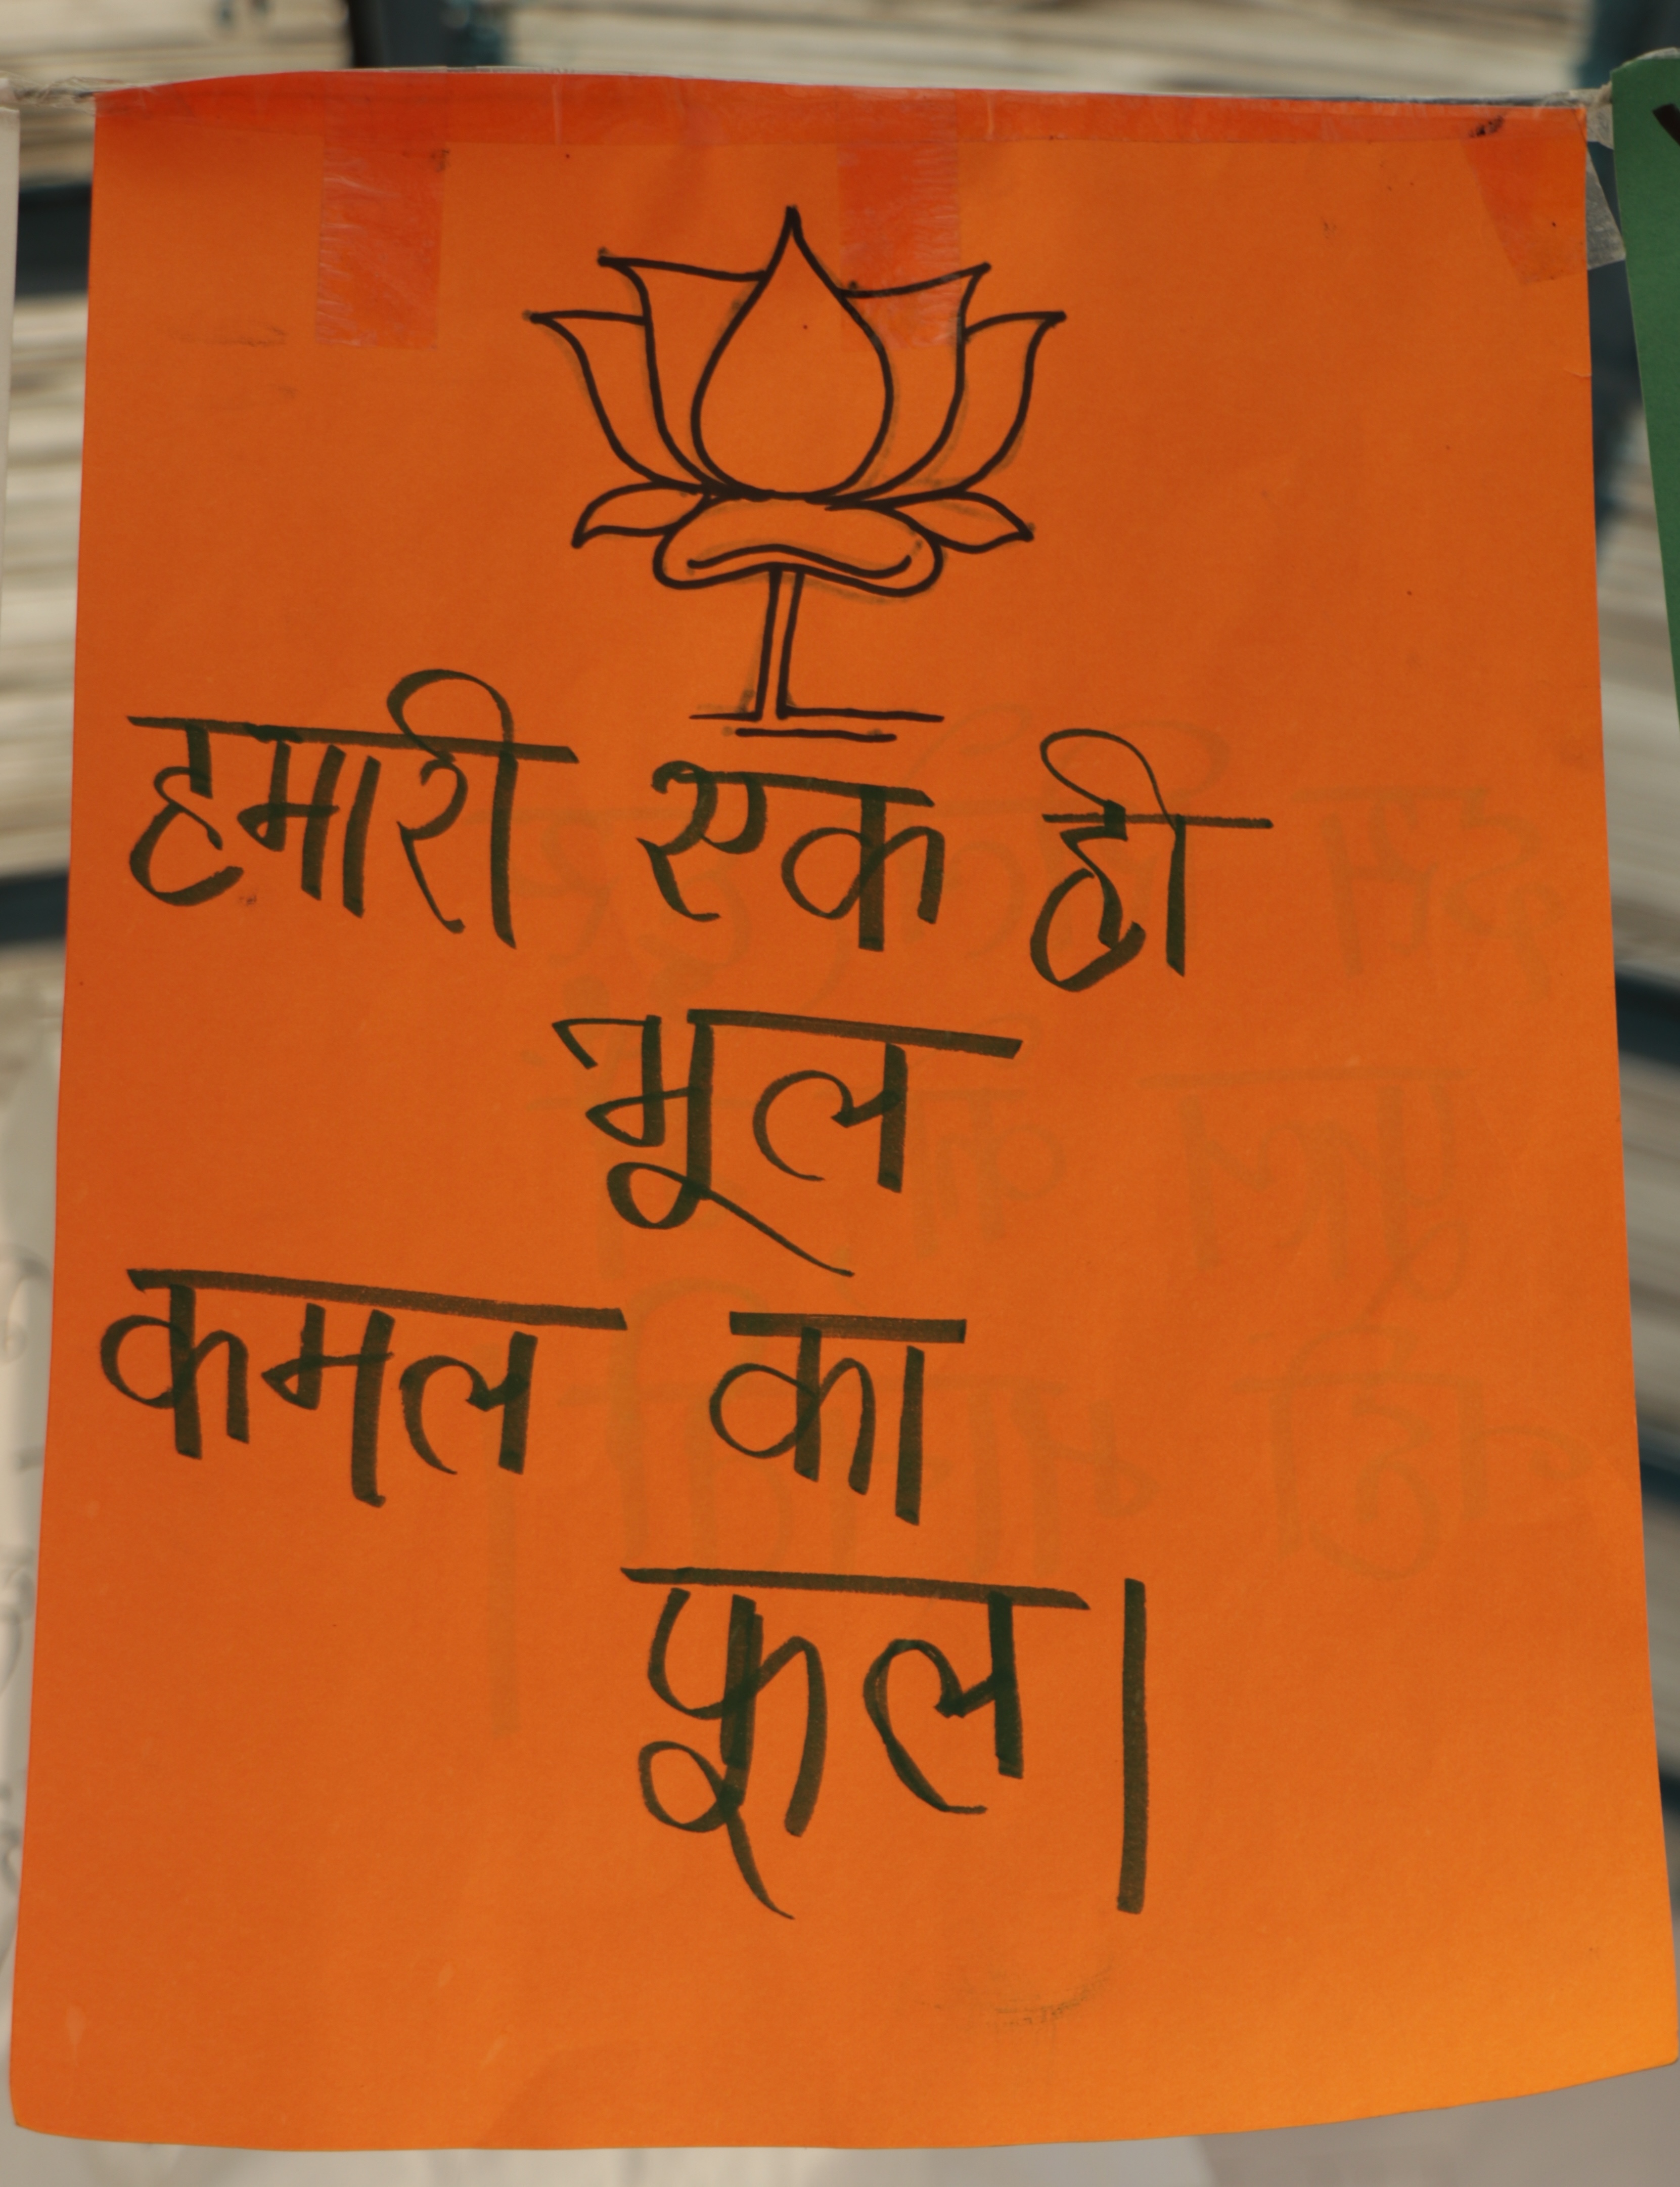 हमारी एक ही
भूल
कमल का
फूल।